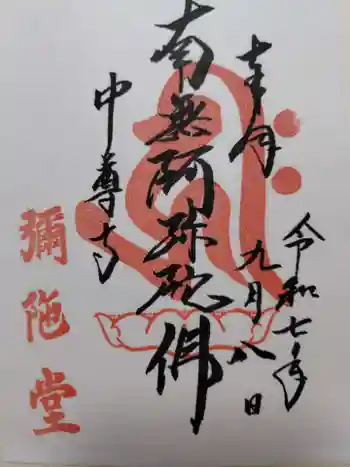 奉拝
令和七年
九月八日
南無阿弥陀佛
中尊寺
彌陀堂